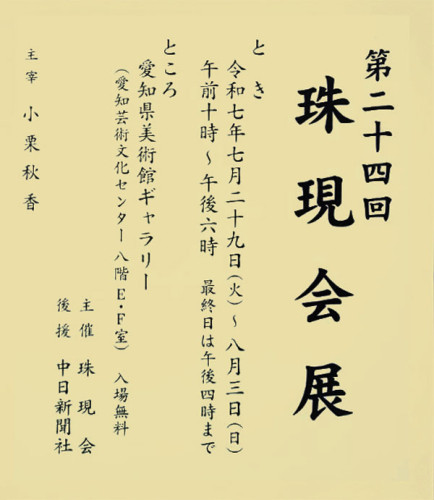 第二十四回
珠現会展
とき
令和七年七月二十九日(火)〜八月三日(日)
午前十時〜午後六時 最終日は午後四時まで
ところ
愛知県美術館ギャラリー
(愛知芸術文化センター八階E・F室) 入場無料
主催 珠現会
後援 中日新聞社
主宰 小栗秋香